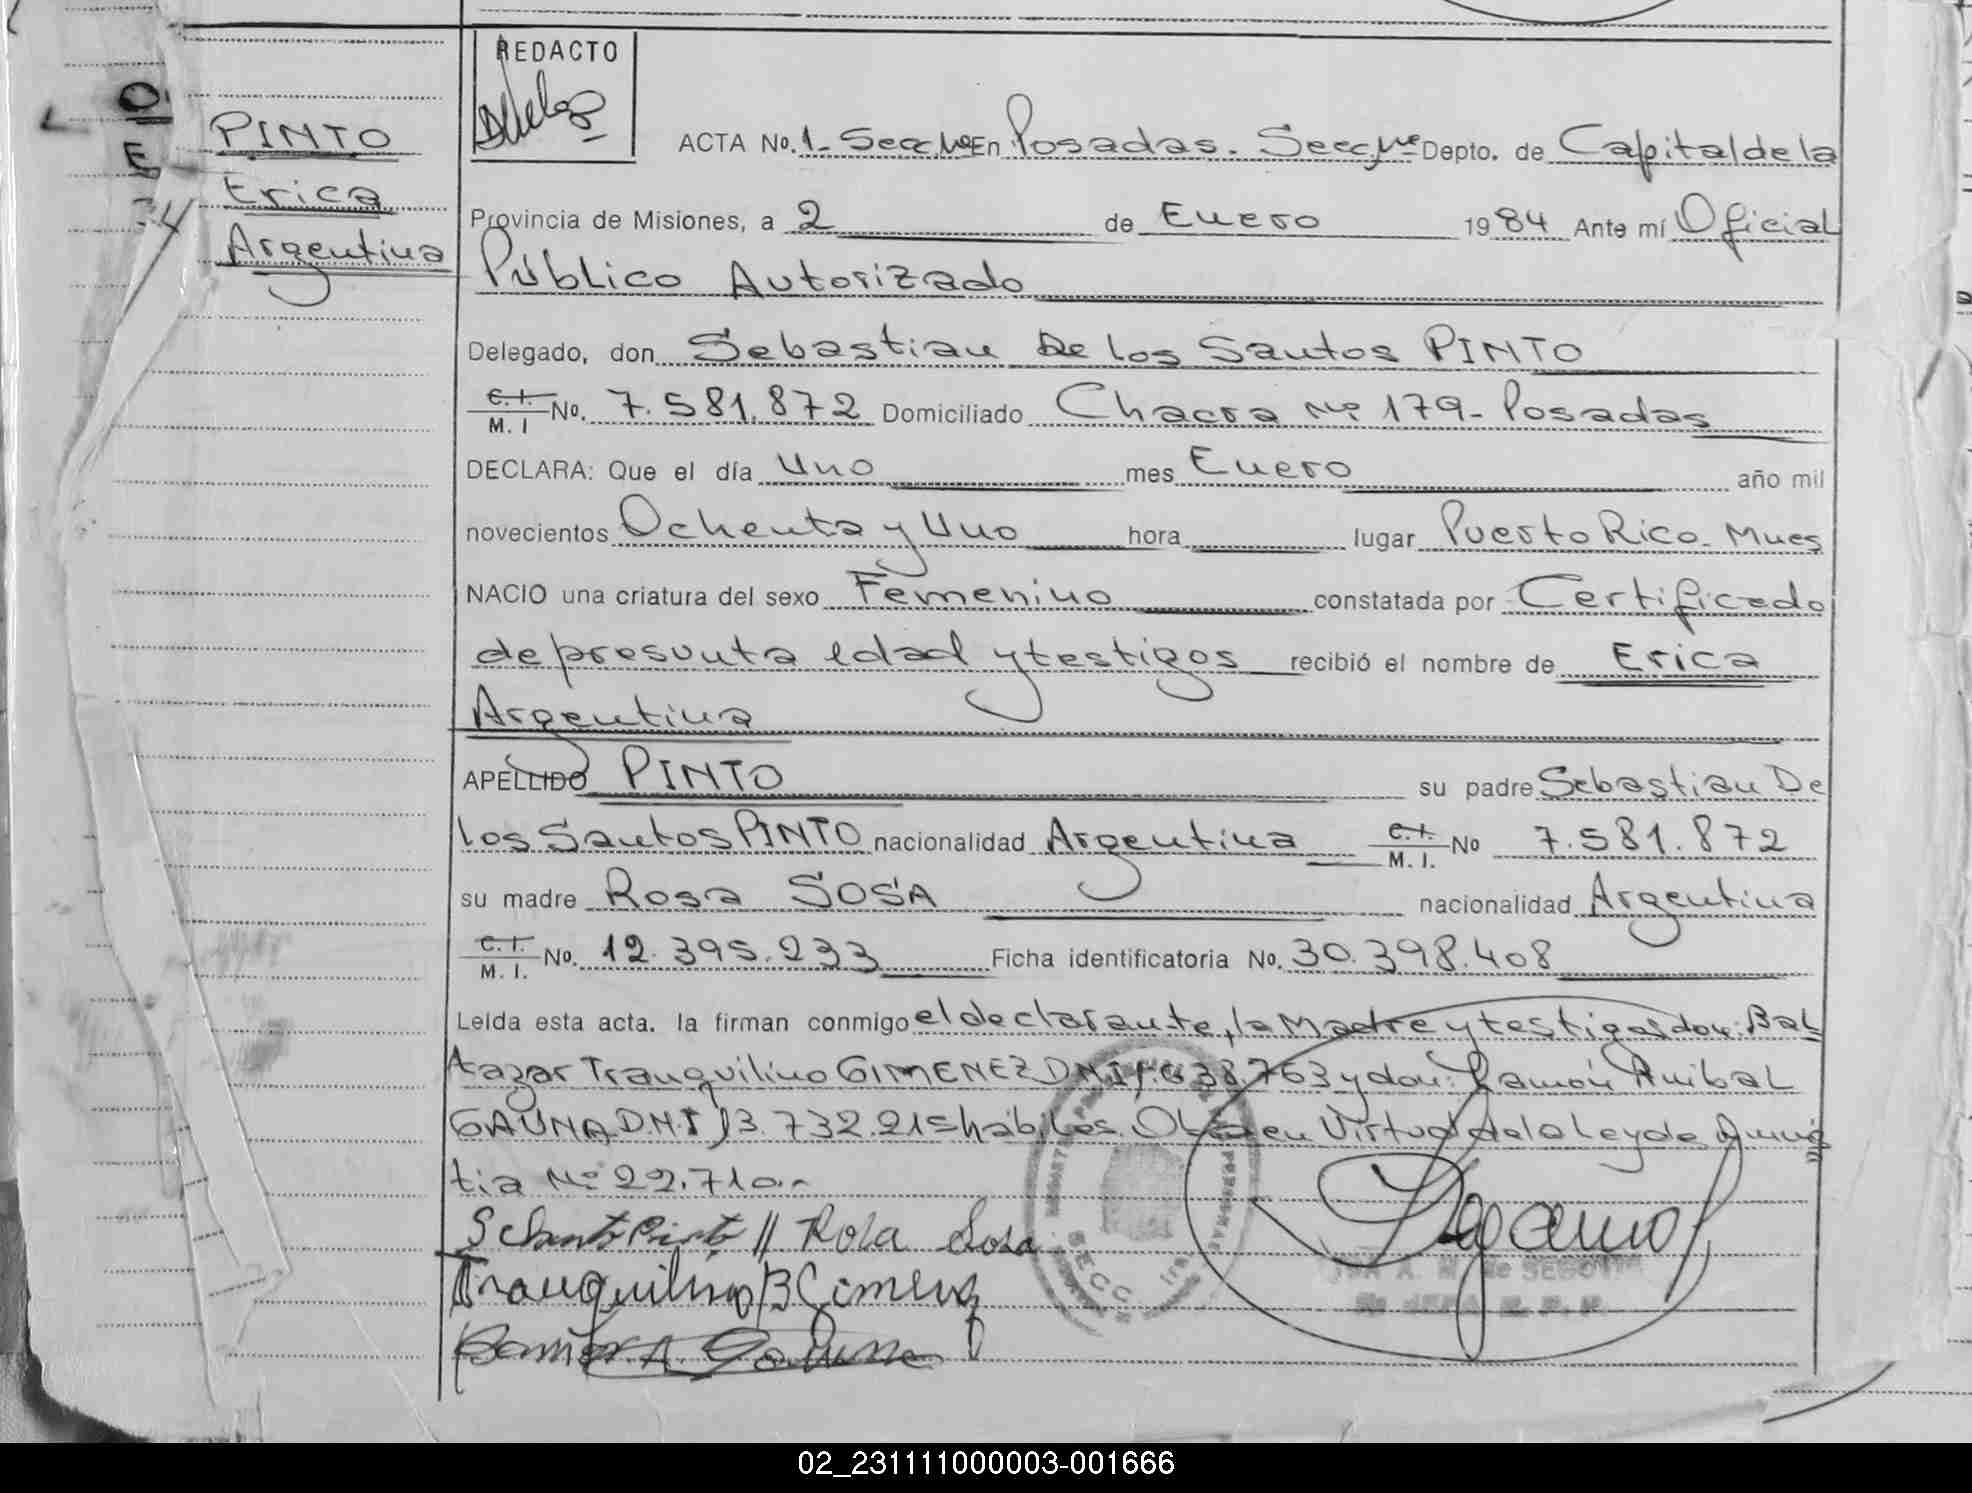 REDACTO
PINTO
Erica
Argentina
ACTA No. 1- Secc. Nº En Posadas. Secc, Nº Depto. de Capital de la
Provincia de Misiones, a 2 de Enero 1984 Ante mí Oficial
Público Autorizado
Delegado, don Sebastian De los Santos PINTO
C. I. M. I No. 7.581.872 Domiciliado Chacra Nº 179- Posadas
DECLARA: Que el día Uno mes Enero año mil
novecientos Ochenta y Uno hora lugar Puerto Rico. Mnes
NACIO una criatura del sexo Femenino constatada por Certificado
de presunta edad y testigos recibió el nombre de Erica
Argentina
APELLIDO PINTO su padre Sebastian De
los Santos PINTO nacionalidad Argentina C. I. M. I. No 7.581.872
su madre Rosa SOSA nacionalidad Argentina
C. I. M. I. No. 12.395.233 Ficha identificatoria No. 30.398.408
Leída esta acta. la firman conmigo el declarante, la Madre y testigos don: Bal
tazar Tranquilino GIMENEZ DNI 38.763 y don: Ramón Anibal
GAUNA D.N.I 13.732.215 hábiles. Obra en Virtud de la Ley de Amnis
tia Nº 22.710.-
S Santo Pinto // Rosa Sosa
Tranquilino B Gimenez
Ramon A. Gauna
SECC
02_231111000003-001666